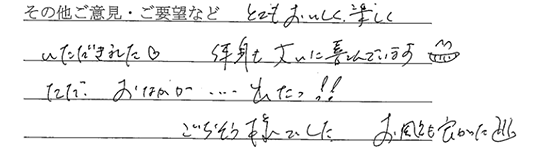 その他ご意見・ご要望など とてもおいしく、楽しく
いただきました♡ 体も大いに喜んでいます
ただ、おなかが…出たっ!!
ごちそう様でした お風呂も良かった